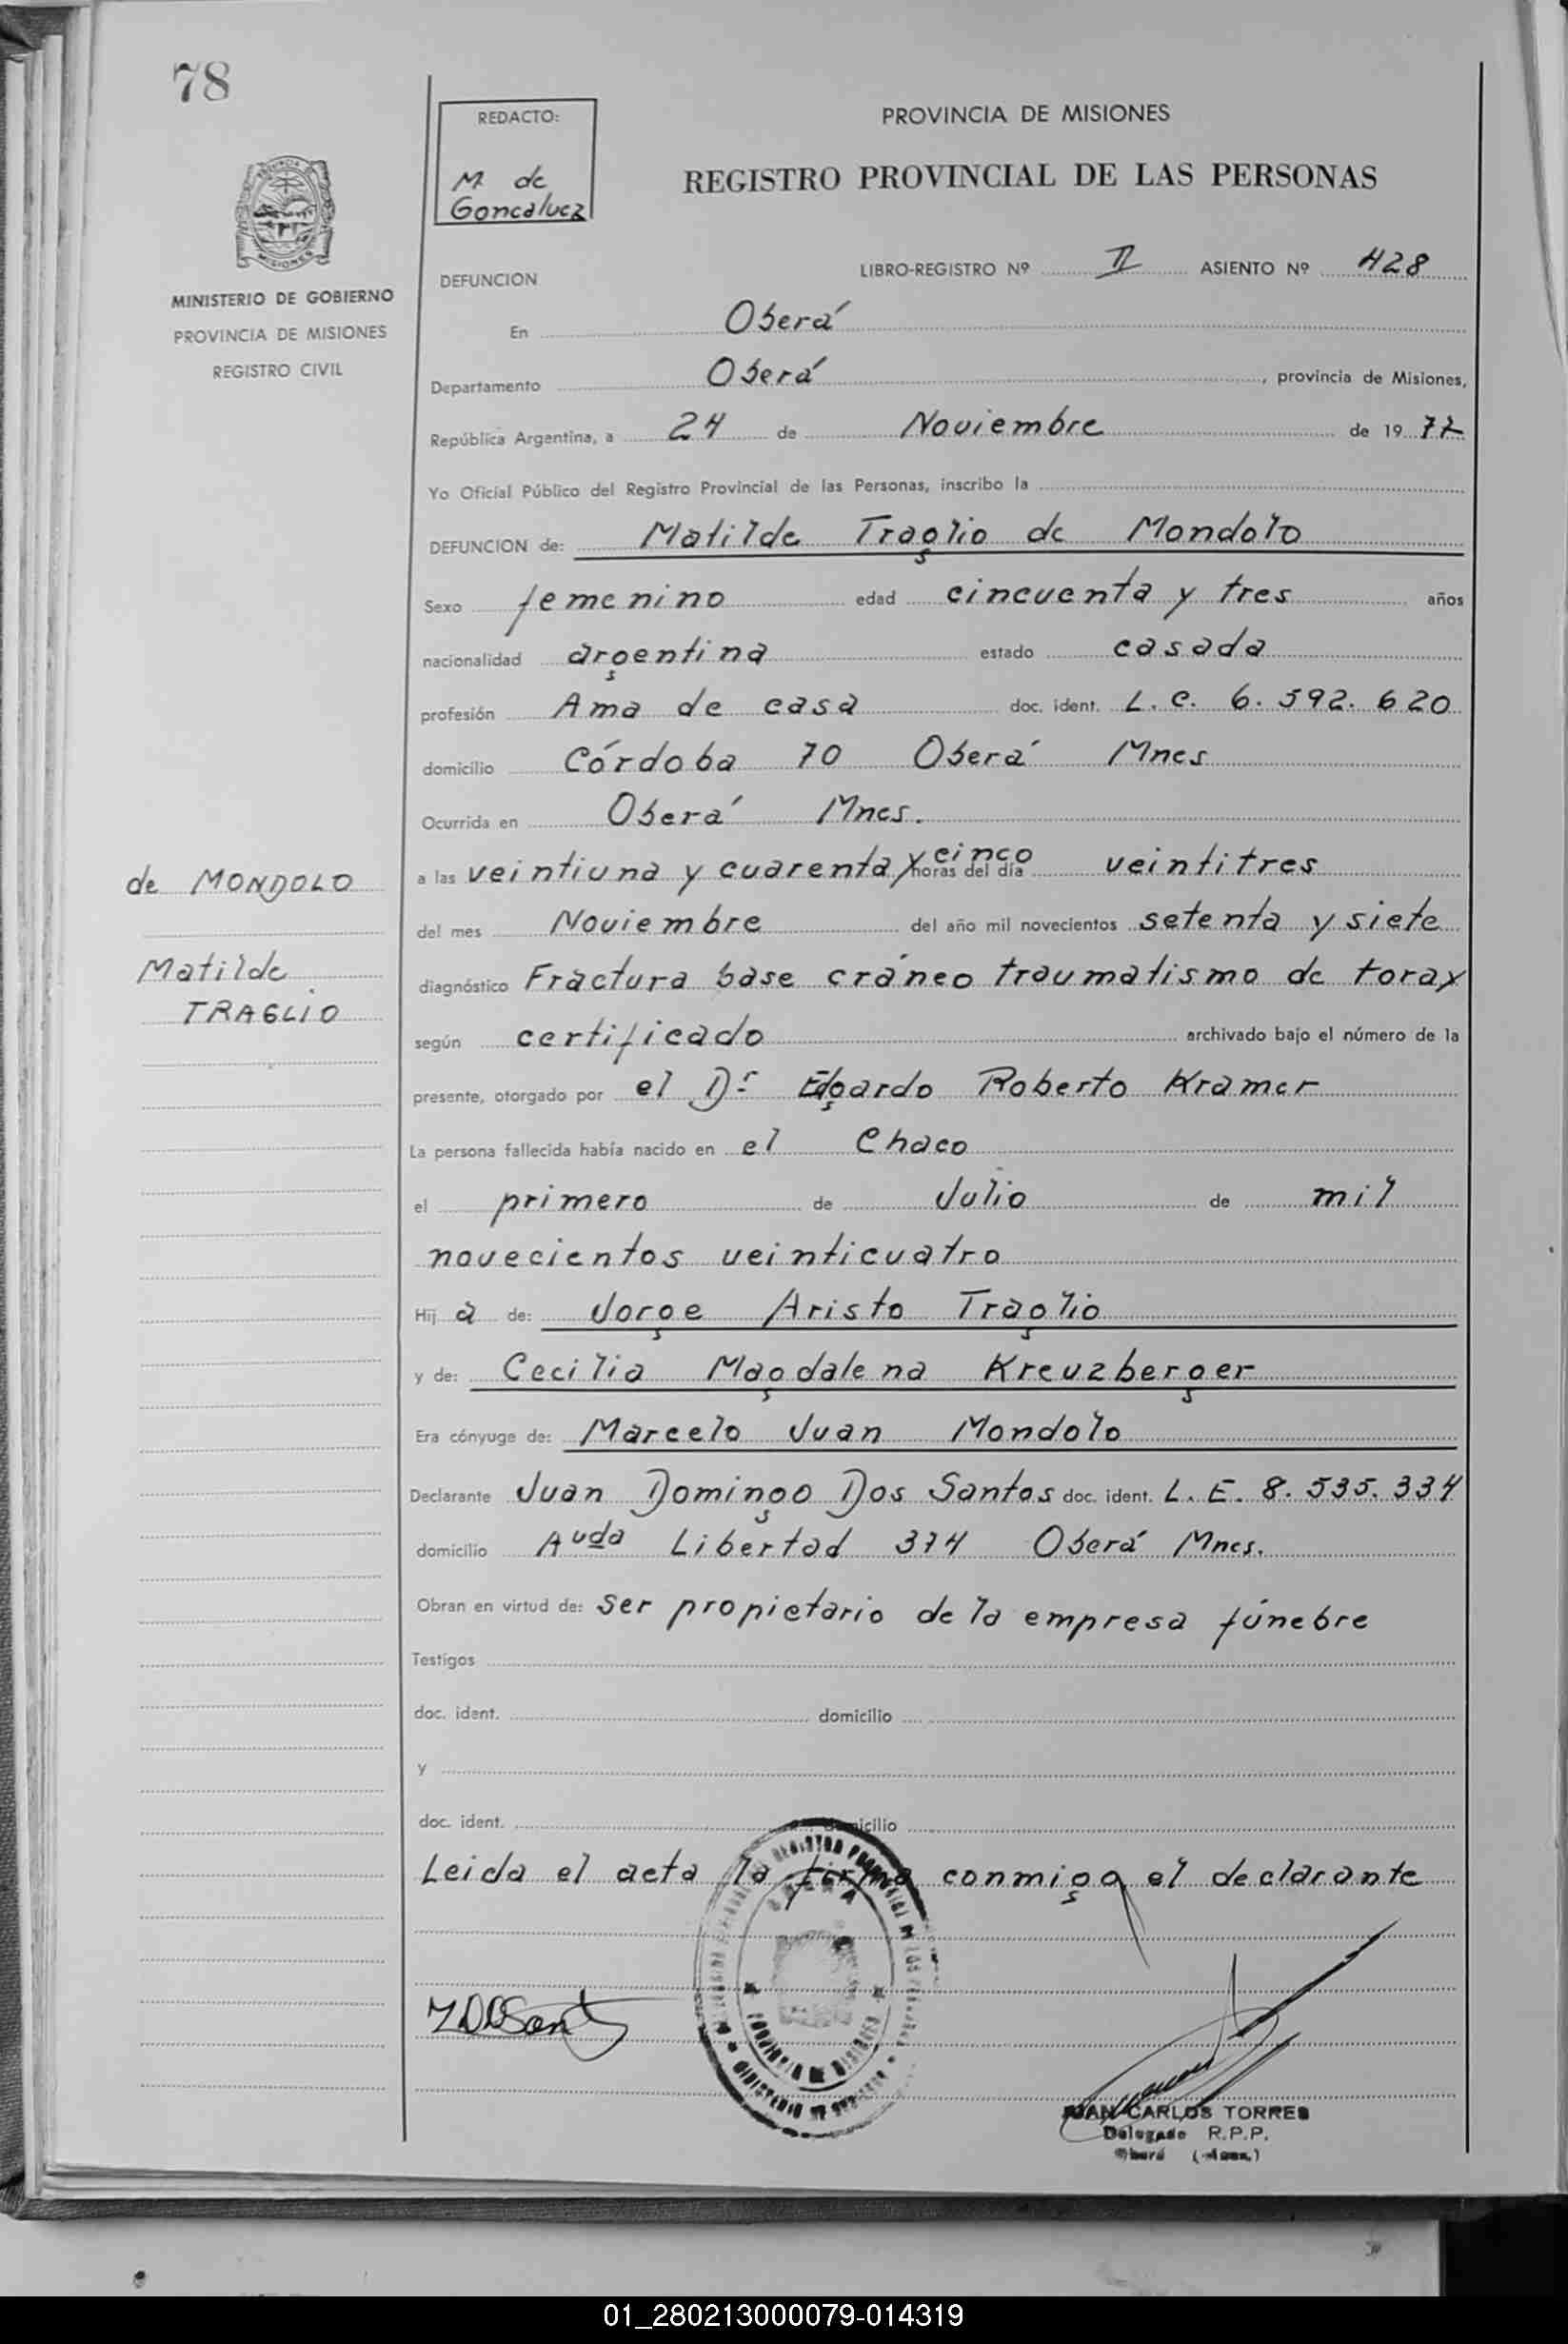 78
REDACTO:
M de
Goncalvez
PROVINCIA DE MISIONES
REGISTRO PROVINCIAL DE LAS PERSONAS
MINISTERIO DE GOBIERNO
PROVINCIA DE MISIONES
REGISTRO CIVIL
DEFUNCION
LIBRO-REGISTRO Nº II ASIENTO Nº 428
En Oberá
Departamento Oberá, provincia de Misiones,
República Argentina, a 24 de Noviembre de 19 77
Yo Oficial Público del Registro Provincial de las Personas, inscribo la
DEFUNCION de: Matilde Traglio de Mondolo
Sexo femenino edad cincuenta y tres años
nacionalidad argentina estado casada
profesión Ama de casa doc. ident. L. C. 6.592.620
domicilio Córdoba 70 Oberá Mnes
Ocurrida en Oberá Mnes.
a las veintiuna y cuarenta y cinco horas del día veintitres
de MONDOLO
Matilde
TRAGLIO
del mes Noviembre del año mil novecientos setenta y siete
diagnóstico Fractura base cráneo traumatismo de torax
según certificado archivado bajo el número de la
presente, otorgado por el Dr Edgardo Roberto Kramer
La persona fallecida había nacido en el Chaco
el primero de Julio de mil
novecientos veinticuatro
Hij a de: Jorge Aristo Traglio
y de: Cecilia Magdalena Kreuzberger
Era cónyuge de: Marcelo Juan Mondolo
Declarante Juan Domingo Dos Santos doc. ident. L. E. 8.535.334
domicilio Avda Libertad 374 Oberá Mnes.
Obran en virtud de: ser propietario de la empresa fúnebre
Testigos
doc. ident. domicilio
y
doc. ident. domicilio
Leida el acta la firma conmigo el declarante
JUAN CARLOS TORRES
Delegado R.P.P.
Oberá (Mnes.)
01_280213000079-014319